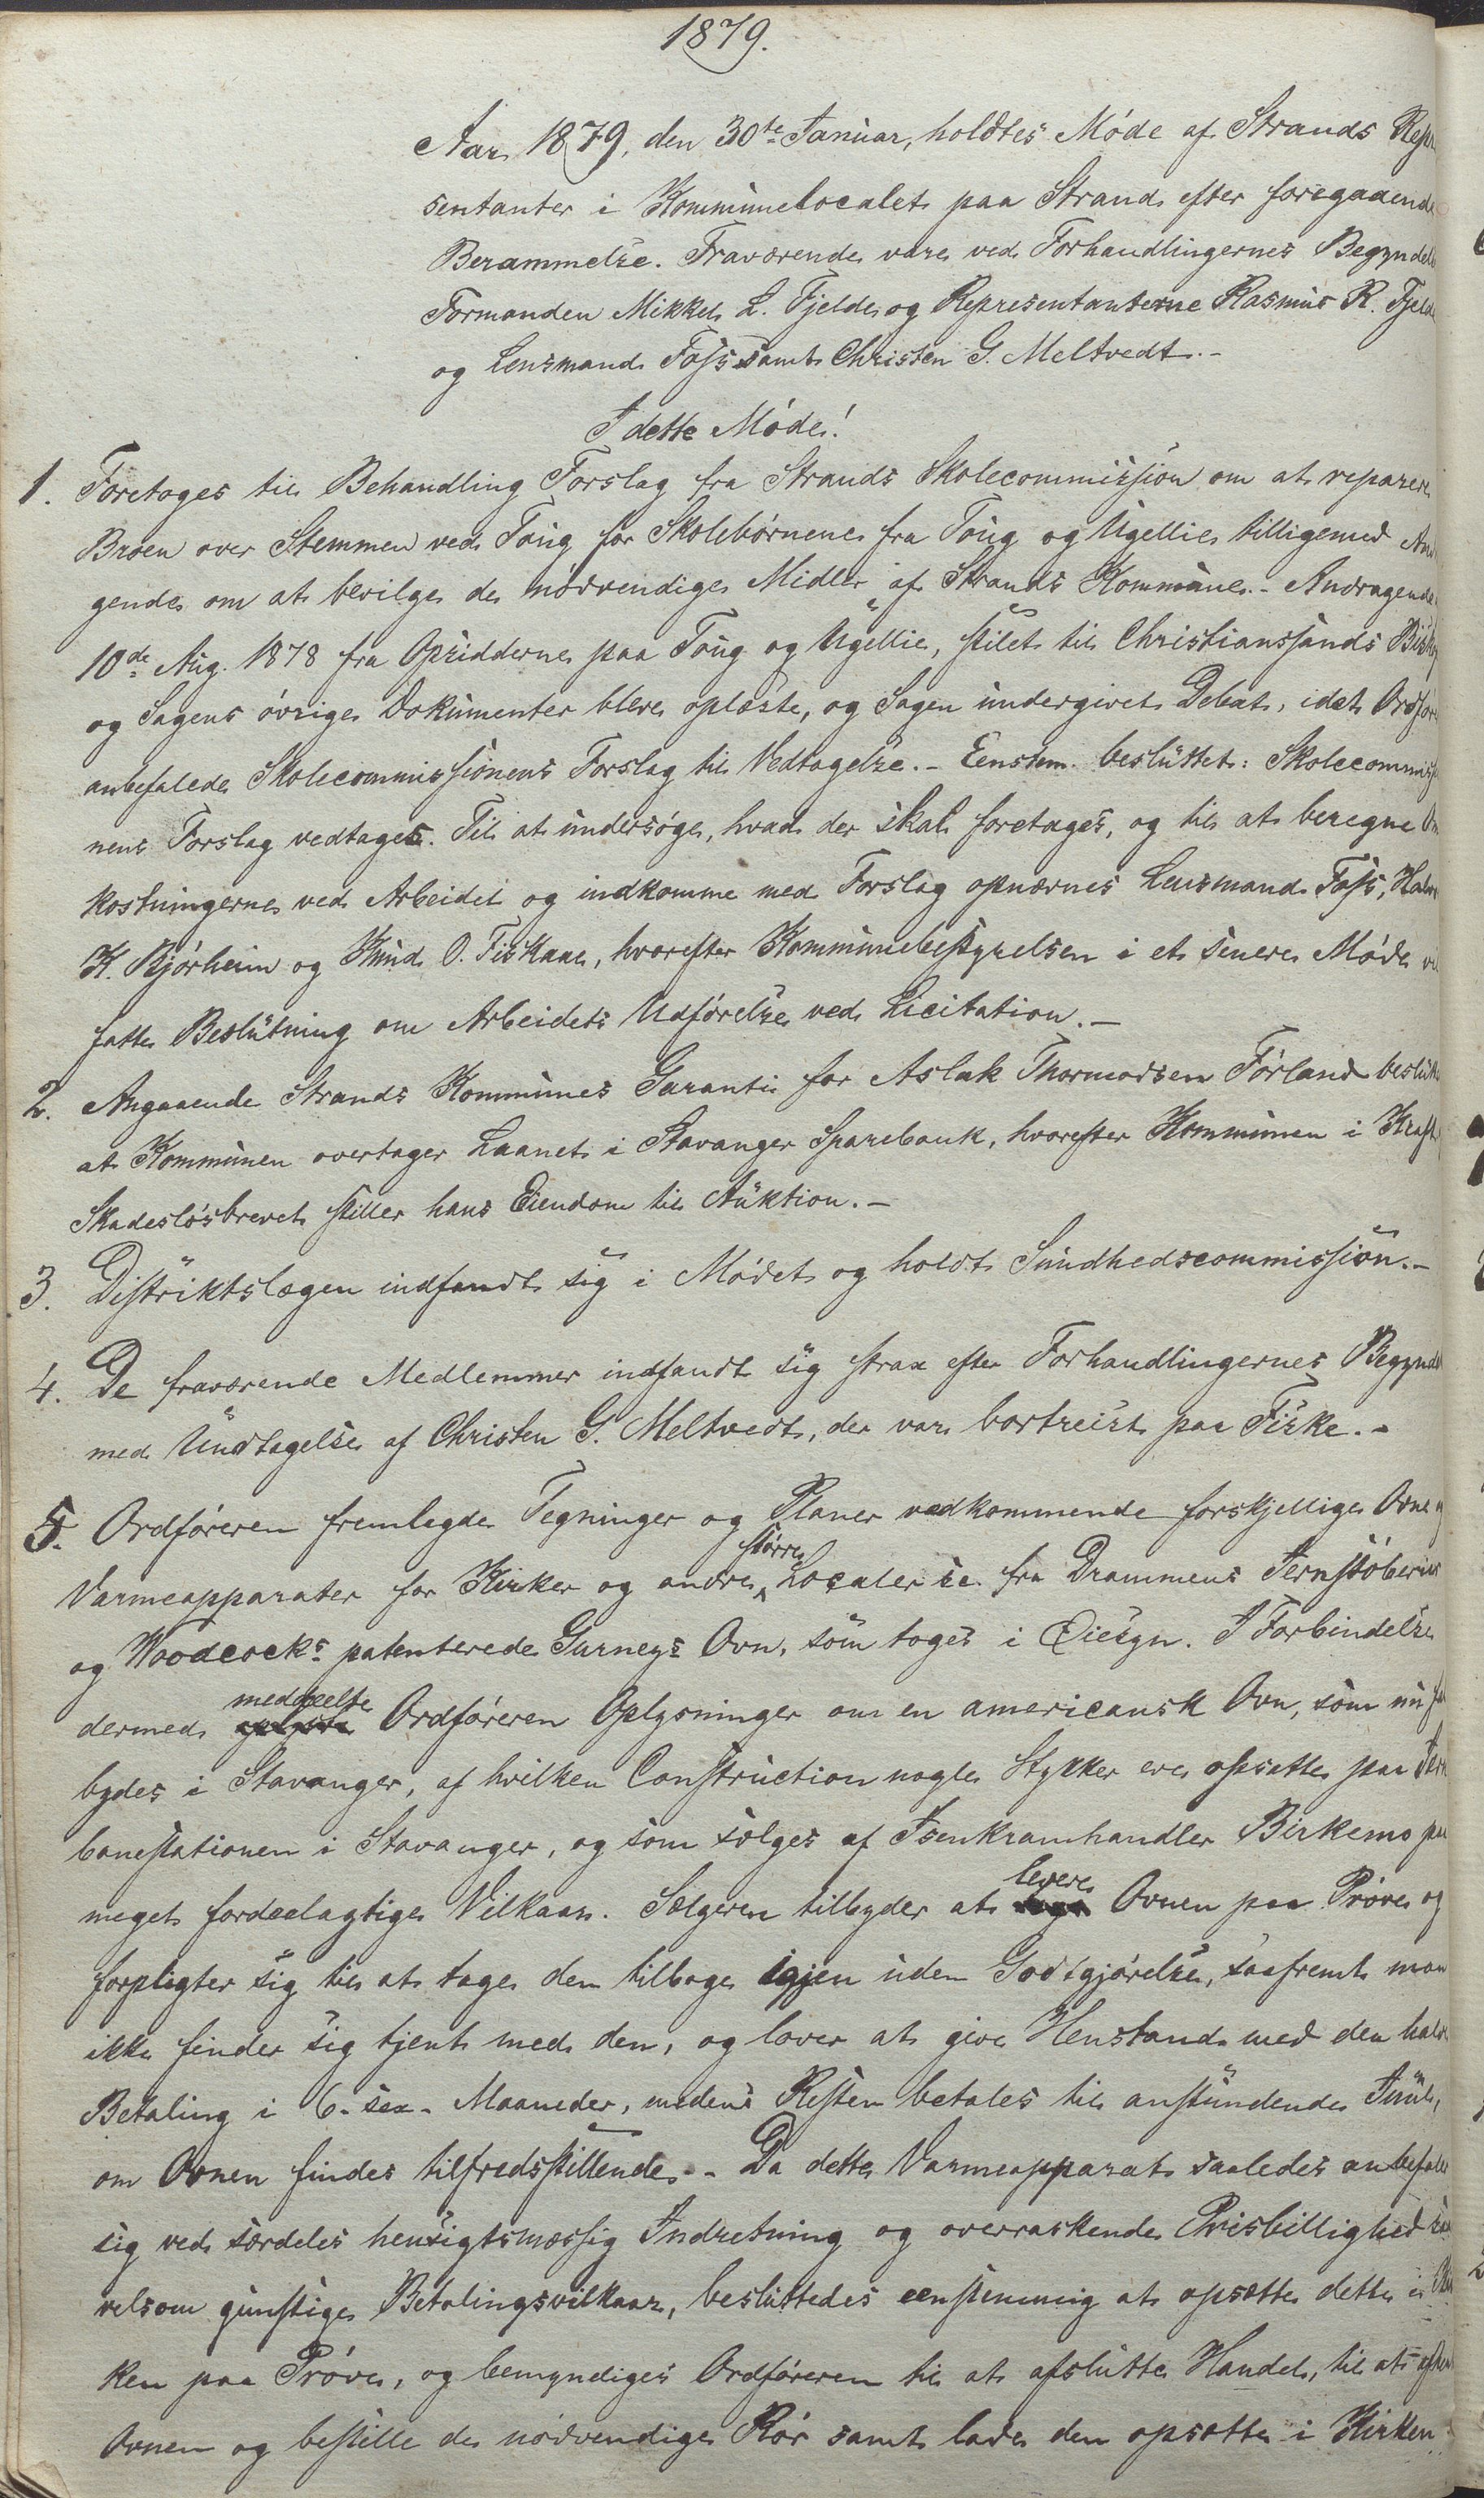 1879.
Aar 1879, den 30te Januar, holdtes Møde af Strands Repræ
sentanter i Kommunelocalet paa Strand efter foregaaende
Berammelse. Fraværende vare ved Forhandlingernes Begyndelse
Formanden Mikkel L. Fjelde og Representanterne Rasmus R. Fjelde
og Lensmand Foss samt Christen G. Meltvedt.-
I dette Møde!
1. Foretoges til Behandling Forslag fra Strands Skolecommission om at reparere
Broen over Stemmen ved Toug for Skolebørnene fra Toug og Ugellie tilligemed Andra
gende om at bevilge de nødvendige Midler af Strands Kommune.- Andragende
10de Aug. 1878 fra Opsidderne paa Toug og Ugellie, stilet til Christianssands Biskop
og Sagens øvrige Dokumenter bleve oplæste, og Sagen undergivet Debat, idet Ordfør
anbefalede Skolecommissionens Forslag til Vedtagelse.- Eenstem. besluttet: Skolecommissio
nens Forslag vedtages. Til at undersøge, hvad der skal foretages, og til at beregne Om
kostningerne ved Arbeidet og indkomme med Forslag opnævnes Lensmand Foss, Halvor
K. Bjørheim og Knud O. Fiskaae, hvorefter Kommunebestyrelsen i et senere Møde vil
fatte Beslutning om Arbeidets Udførelse ved Licitation.-
2. Angaaende Strands Kommunes Garanti for Aslak Thormodsen Førland besluttet
at Kommunen overtager Laanet i Stavanger Sparebank, hvorefter Kommunen i Kraft
Skadesløsbrevet stiller hans Eiendom til Auktion.-
3. Distriktslægen indfandt sig i Mødet og holdt Sundhedscommission.-
4. De fraværende Medlemmer indfandt sig strax efter Forhandlingernes Begyndel
med Undtagelse af Christen G. Meltvedt, der var bortreist paa Fiske.-
5. Ordføreren fremlagde Tegninger og Planer vedkommende forskjellige Ovne og
Varmeapparater for Kirker og andre større Localer se fra Drammens Jernstøberier
og Woodcocks patenterede Gurneys Ovn, som toges i Øiesyn. I Forbindelse
dermed meddeelte Ordføreren Oplysninger om en americansk Ovn, som nu for
bydes i Stavanger, af hvilken Construction nogle Stykker ere opsatte paa Jern
banestationen i Stavanger, og som sælges af Isenkramhandler Birkemo paa
meget fordeelagtige Vilkaar. Sælgeren tilbyder at levere Ovnen paa Prøve og
forpligter sig til at tage den tilbage igjen uden Godtgjørelse, saafremt man
ikke finder sig tjent med den, og lover at give Henstand med den halve
Betaling i 6- sex- Maaneder, medens Resten betales til anstundende Juul,
om Ovnen findes tilfredsstillende.- Da dette Varmeapparat saaledes anbefaler
sig ved særdeles hensigtsmæssig Indretning og overraskende Prisbillighed saa
velsom gunstige Betalingsvilkaar, besluttedes eenstemmig at opsætte dette i Kir
ken paa Prøve, og bemyndiges Ordføreren til at afslutte Handel, til at afhente
Ovnen og bestille de nødvendige Rør samt lade den opsætte i Kirken